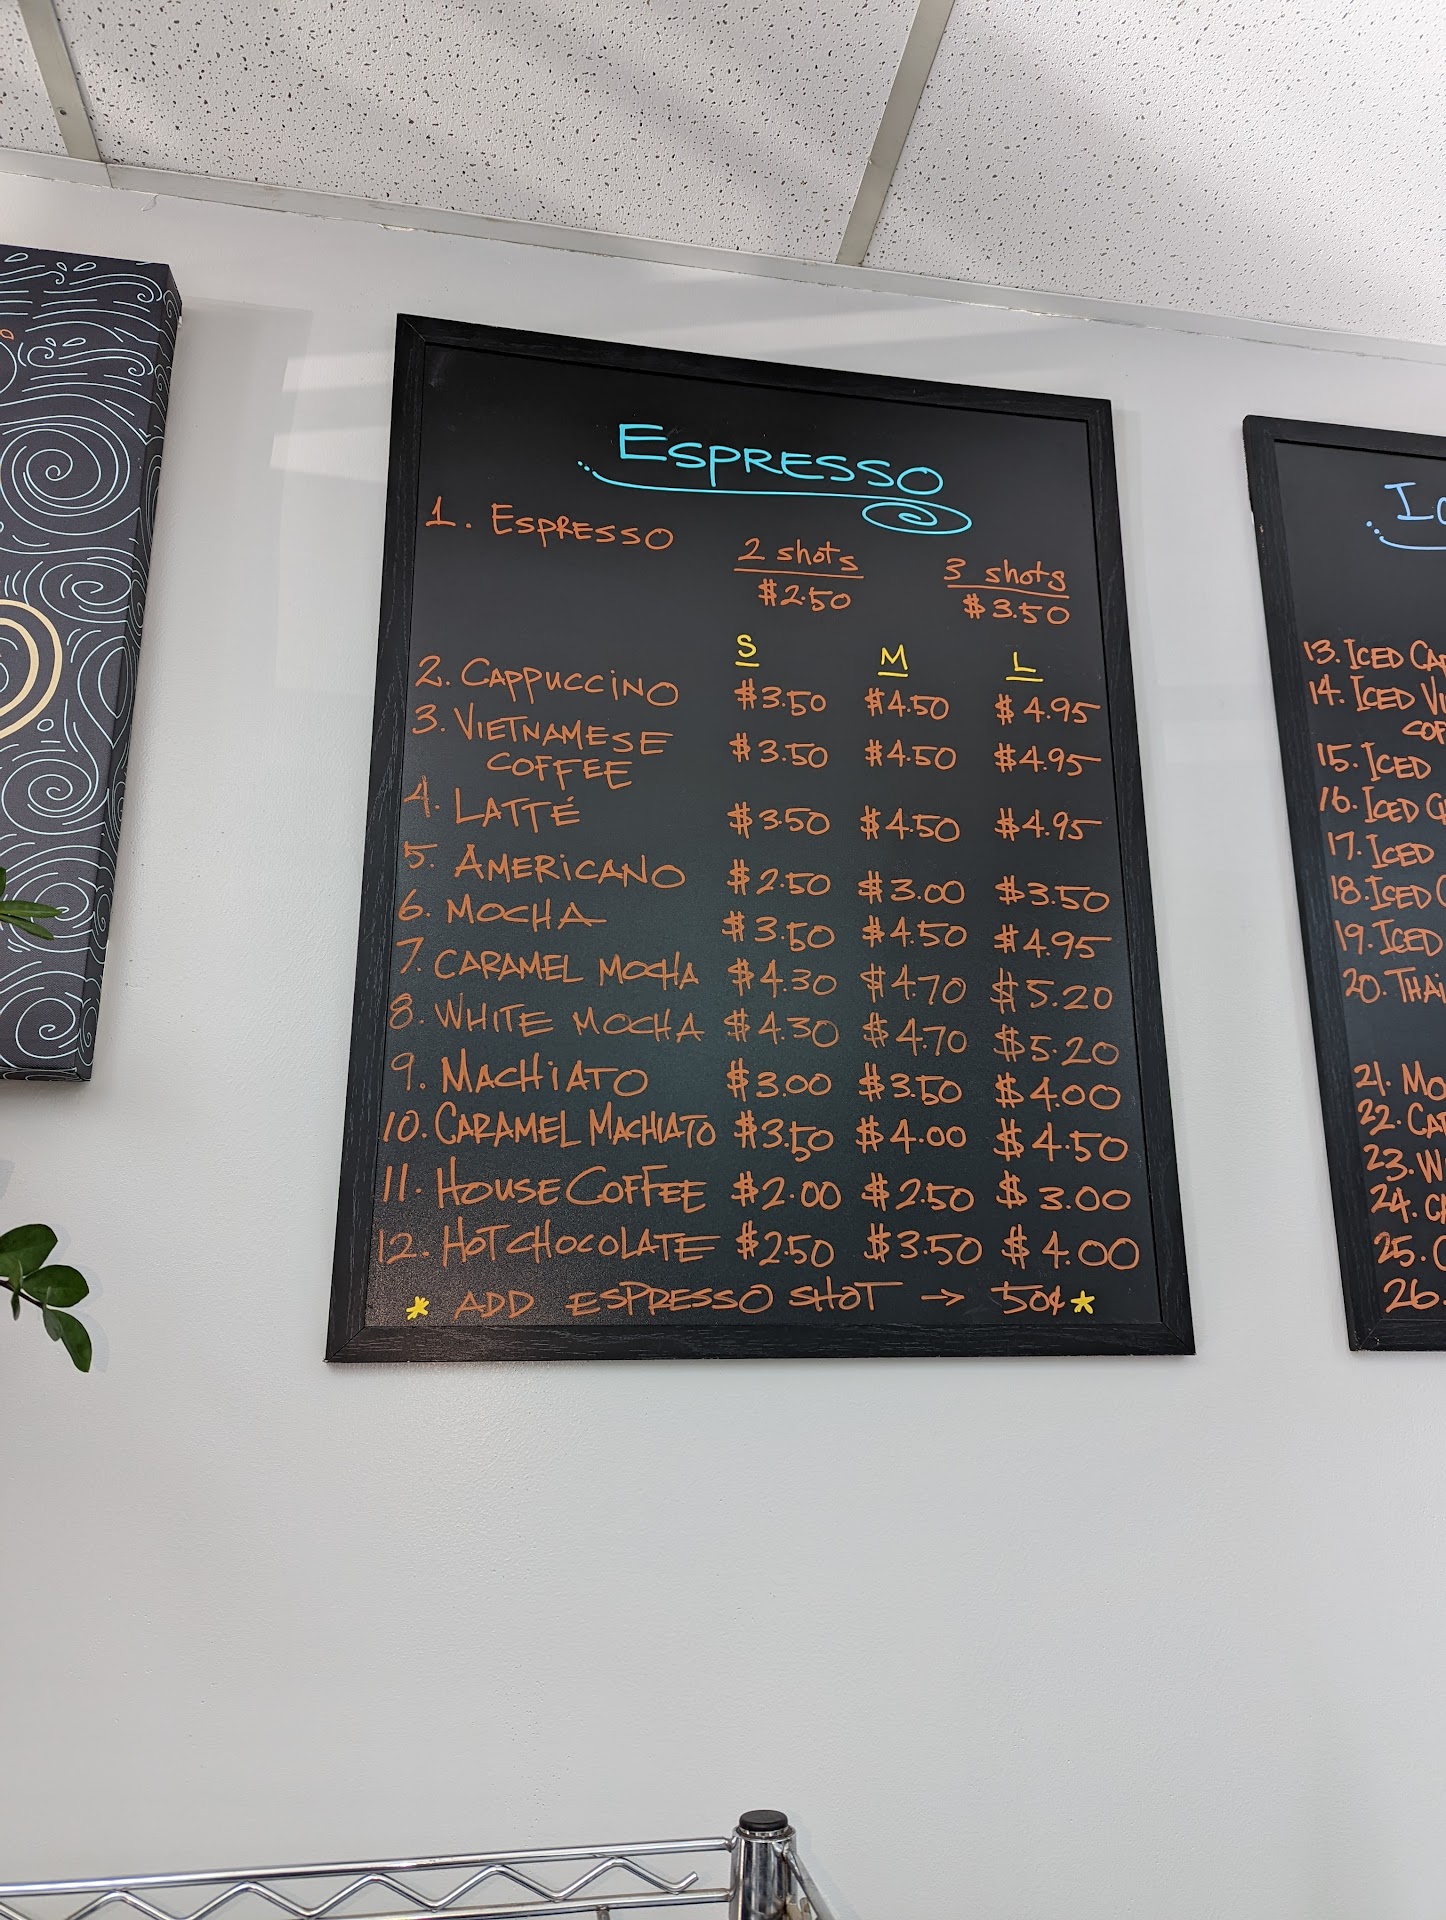 ESPRESSO
1. ESPRESSO
2 shots 3 shots
$2.50 $3.50
S M L
2. CAPPUCCINO $3.50 $4.50 $4.95
3. VIETNAMESE
COFFEE $3.50 $4.50 $4.95
4. LATTÉ $3.50 $4.50 $4.95
5. AMERICANO $2.50 $3.00 $3.50
6. MOCHA $3.50 $4.50 $4.95
7. CARAMEL MOCHA $4.30 $4.70 $5.20
8. WHITE MOCHA $4.30 $4.70 $5.20
9. MACHIATO $3.00 $3.50 $4.00
10. CARAMEL MACHIATO $3.50 $4.00 $4.50
11. HOUSE COFFEE $2.00 $2.50 $3.00
12. HOT CHOCOLATE $2.50 $3.50 $4.00
* ADD ESPRESSO SHOT → 50¢ *
13. ICED
14. ICED
15. ICED
16. ICED
17. ICED
18. ICED
19. ICED
20. THAI
21.
22.
23.
24.
25.
26.